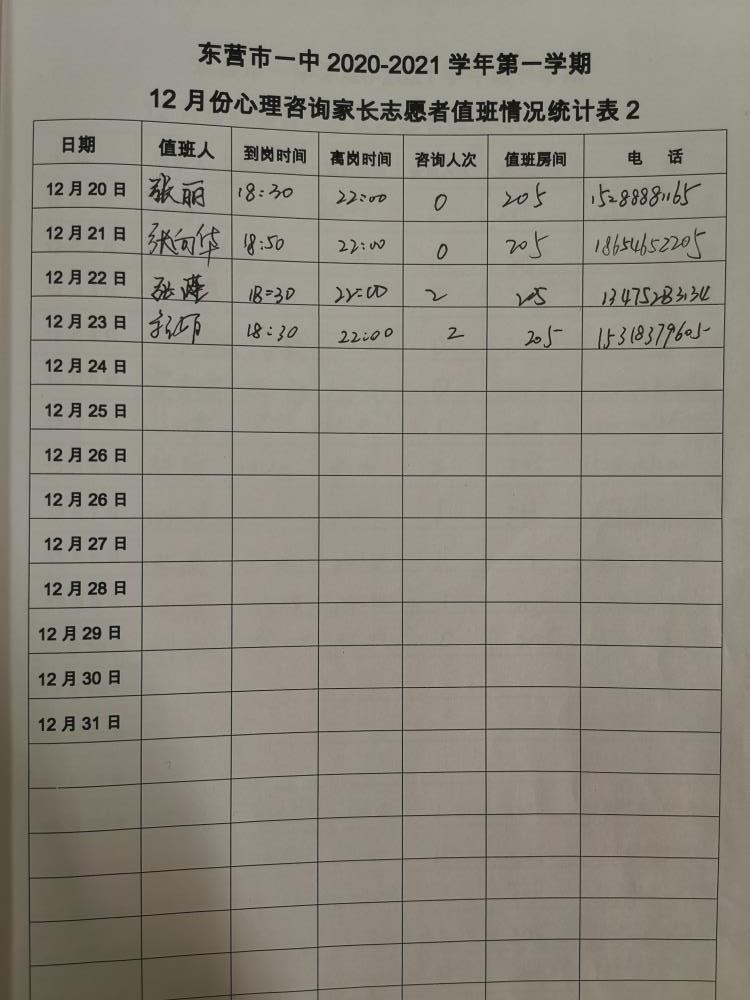 东营市一中 2020-2021 学年第一学期
12 月份心理咨询家长志愿者值班情况统计表 2
日期 值班人 到岗时间 离岗时间 咨询人次 值班房间 电 话
12 月 20 日 张丽 18:30 22:00 0 205 15288881165
12 月 21 日 张向华 18:50 22:00 0 205 18654652205
12 月 22 日 18:30 22:00 2 205 13475283134
12 月 23 日 18:30 22:00 2 205 15318379605
12 月 24 日
12 月 25 日
12 月 26 日
12 月 26 日
12 月 27 日
12 月 28 日
12 月 29 日
12 月 30 日
12 月 31 日